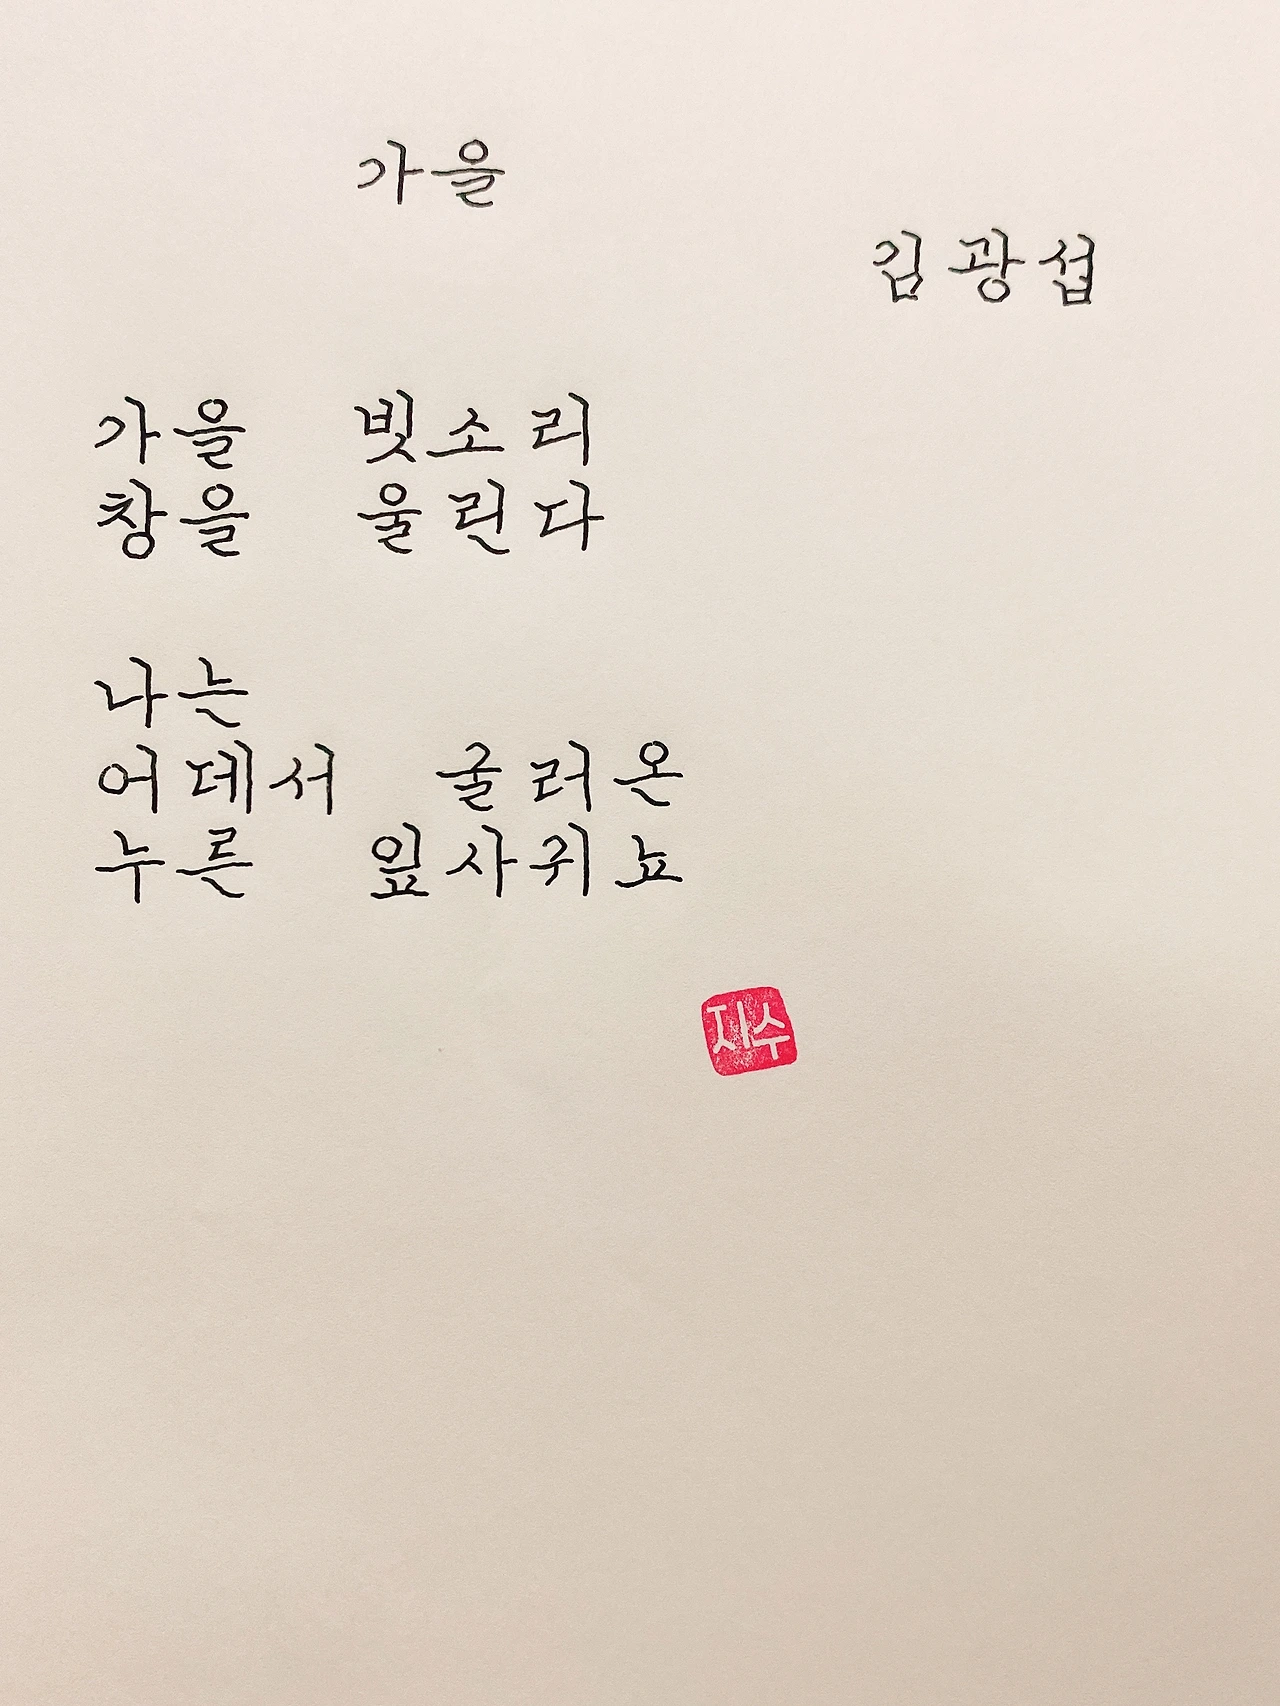 가을
김광섭
가을 빗소리
창을 울린다
나는
어데서 굴러온
누른 잎사귀뇨
지수